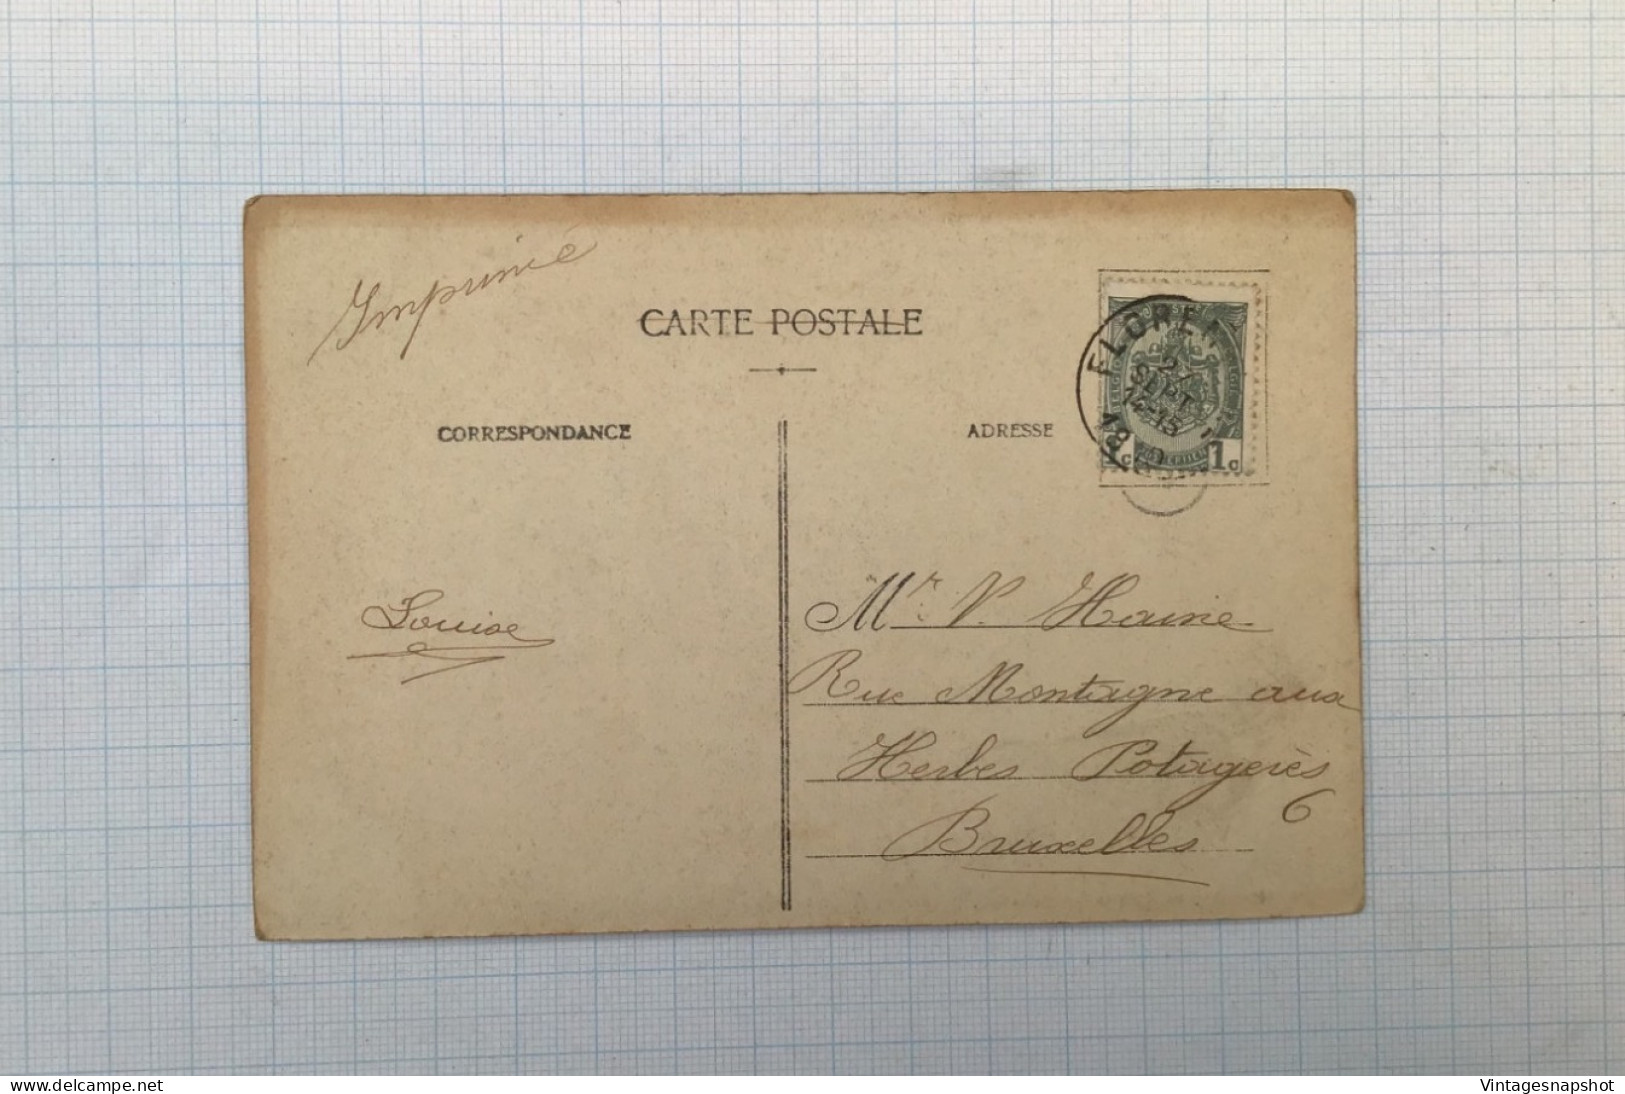 Imprimé
CARTE POSTALE
CORRESPONDANCE
ADRESSE
FLOREN
SEPT
14-15
1c
Louise
Mr. V. Haine
Rue Montagne aux
Herbes Potagerès
6
Bruxelles
delcampe.net
Vintagesnapshot